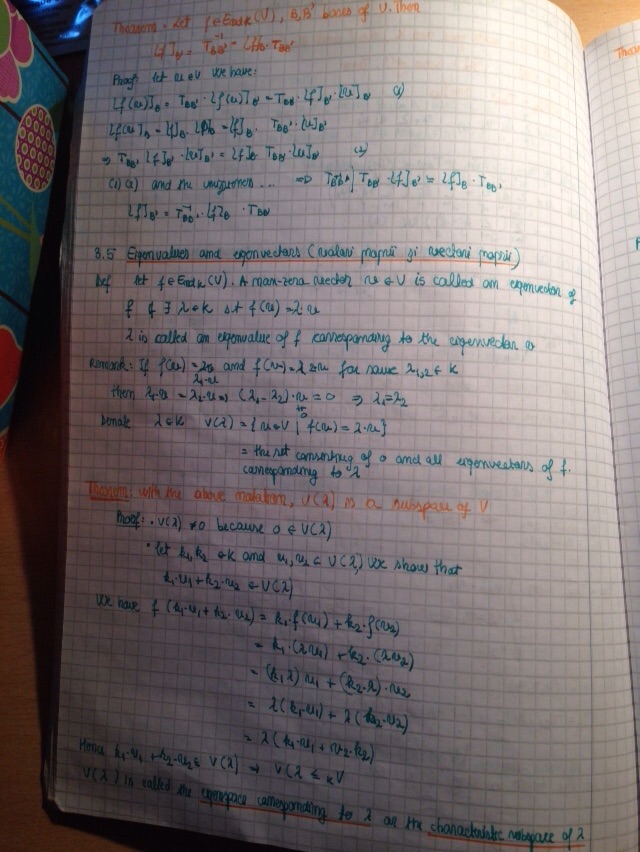 Theorem - Let f ∈ End_K(V), B, B' bases of V. Then
[f]_B' = T_BB'^-1 · [f]_B · T_BB'
Proof: let u ∈ V we have:
[f(u)]_B = T_BB' · [f(u)]_B' = T_BB' · [f]_B' · [u]_B' (1)
[f(u)]_B = [f]_B · [u]_B = [f]_B · T_BB' · [u]_B'
⇒ T_BB' [f]_B' · [u]_B' = [f]_B T_BB' · [u]_B' (2)
(1) (2) and the uniqueness ... ⇒ T_BB'^-1 | T_BB' · [f]_B' = [f]_B · T_BB'
[f]_B' = T_BB'^-1 · [f]_B · T_BB'
3.5 Eigenvalues and eigenvectors (valori proprii și vectori proprii)
Def let f ∈ End_K(V). A non-zero vector u ∈ V is called an eigenvector of
f if ∃ λ ∈ K s.t f(u) = λ·u
λ is called an eigenvalue of f corresponding to the eigenvector u
Remark: If f(u) = λ1·u and f(u) = λ2·u for some λ1,2 ∈ K
then λ1·u = λ2·u ⇒ (λ1 - λ2)·u = 0 ⇒ λ1 = λ2
Denote λ ∈ K V(λ) = {u ∈ V | f(u) = λ·u}
= the set consisting of 0 and all eigenvectors of f.
corresponding to λ
Theorem: With the above notation, V(λ) is a subspace of V
Proof: · V(λ) ≠ 0 because 0 ∈ V(λ)
· let k1, k2 ∈ K and u1, u2 ∈ V(λ) We show that
k1·u1 + k2·u2 ∈ V(λ)
We have f(k1·u1 + k2·u2) = k1·f(u1) + k2·f(u2)
= k1·(λu1) + k2·(λu2)
= (k1λ)u1 + (k2·λ)·u2
= λ(k1·u1) + λ(k2·u2)
= λ(k1·u1 + u2·k2)
Hence k1·u1 + k2·u2 ∈ V(λ) ⇒ V(λ ≤_K V
V(λ) is called the eigenspace corresponding to λ or the characteristic subspace of λ